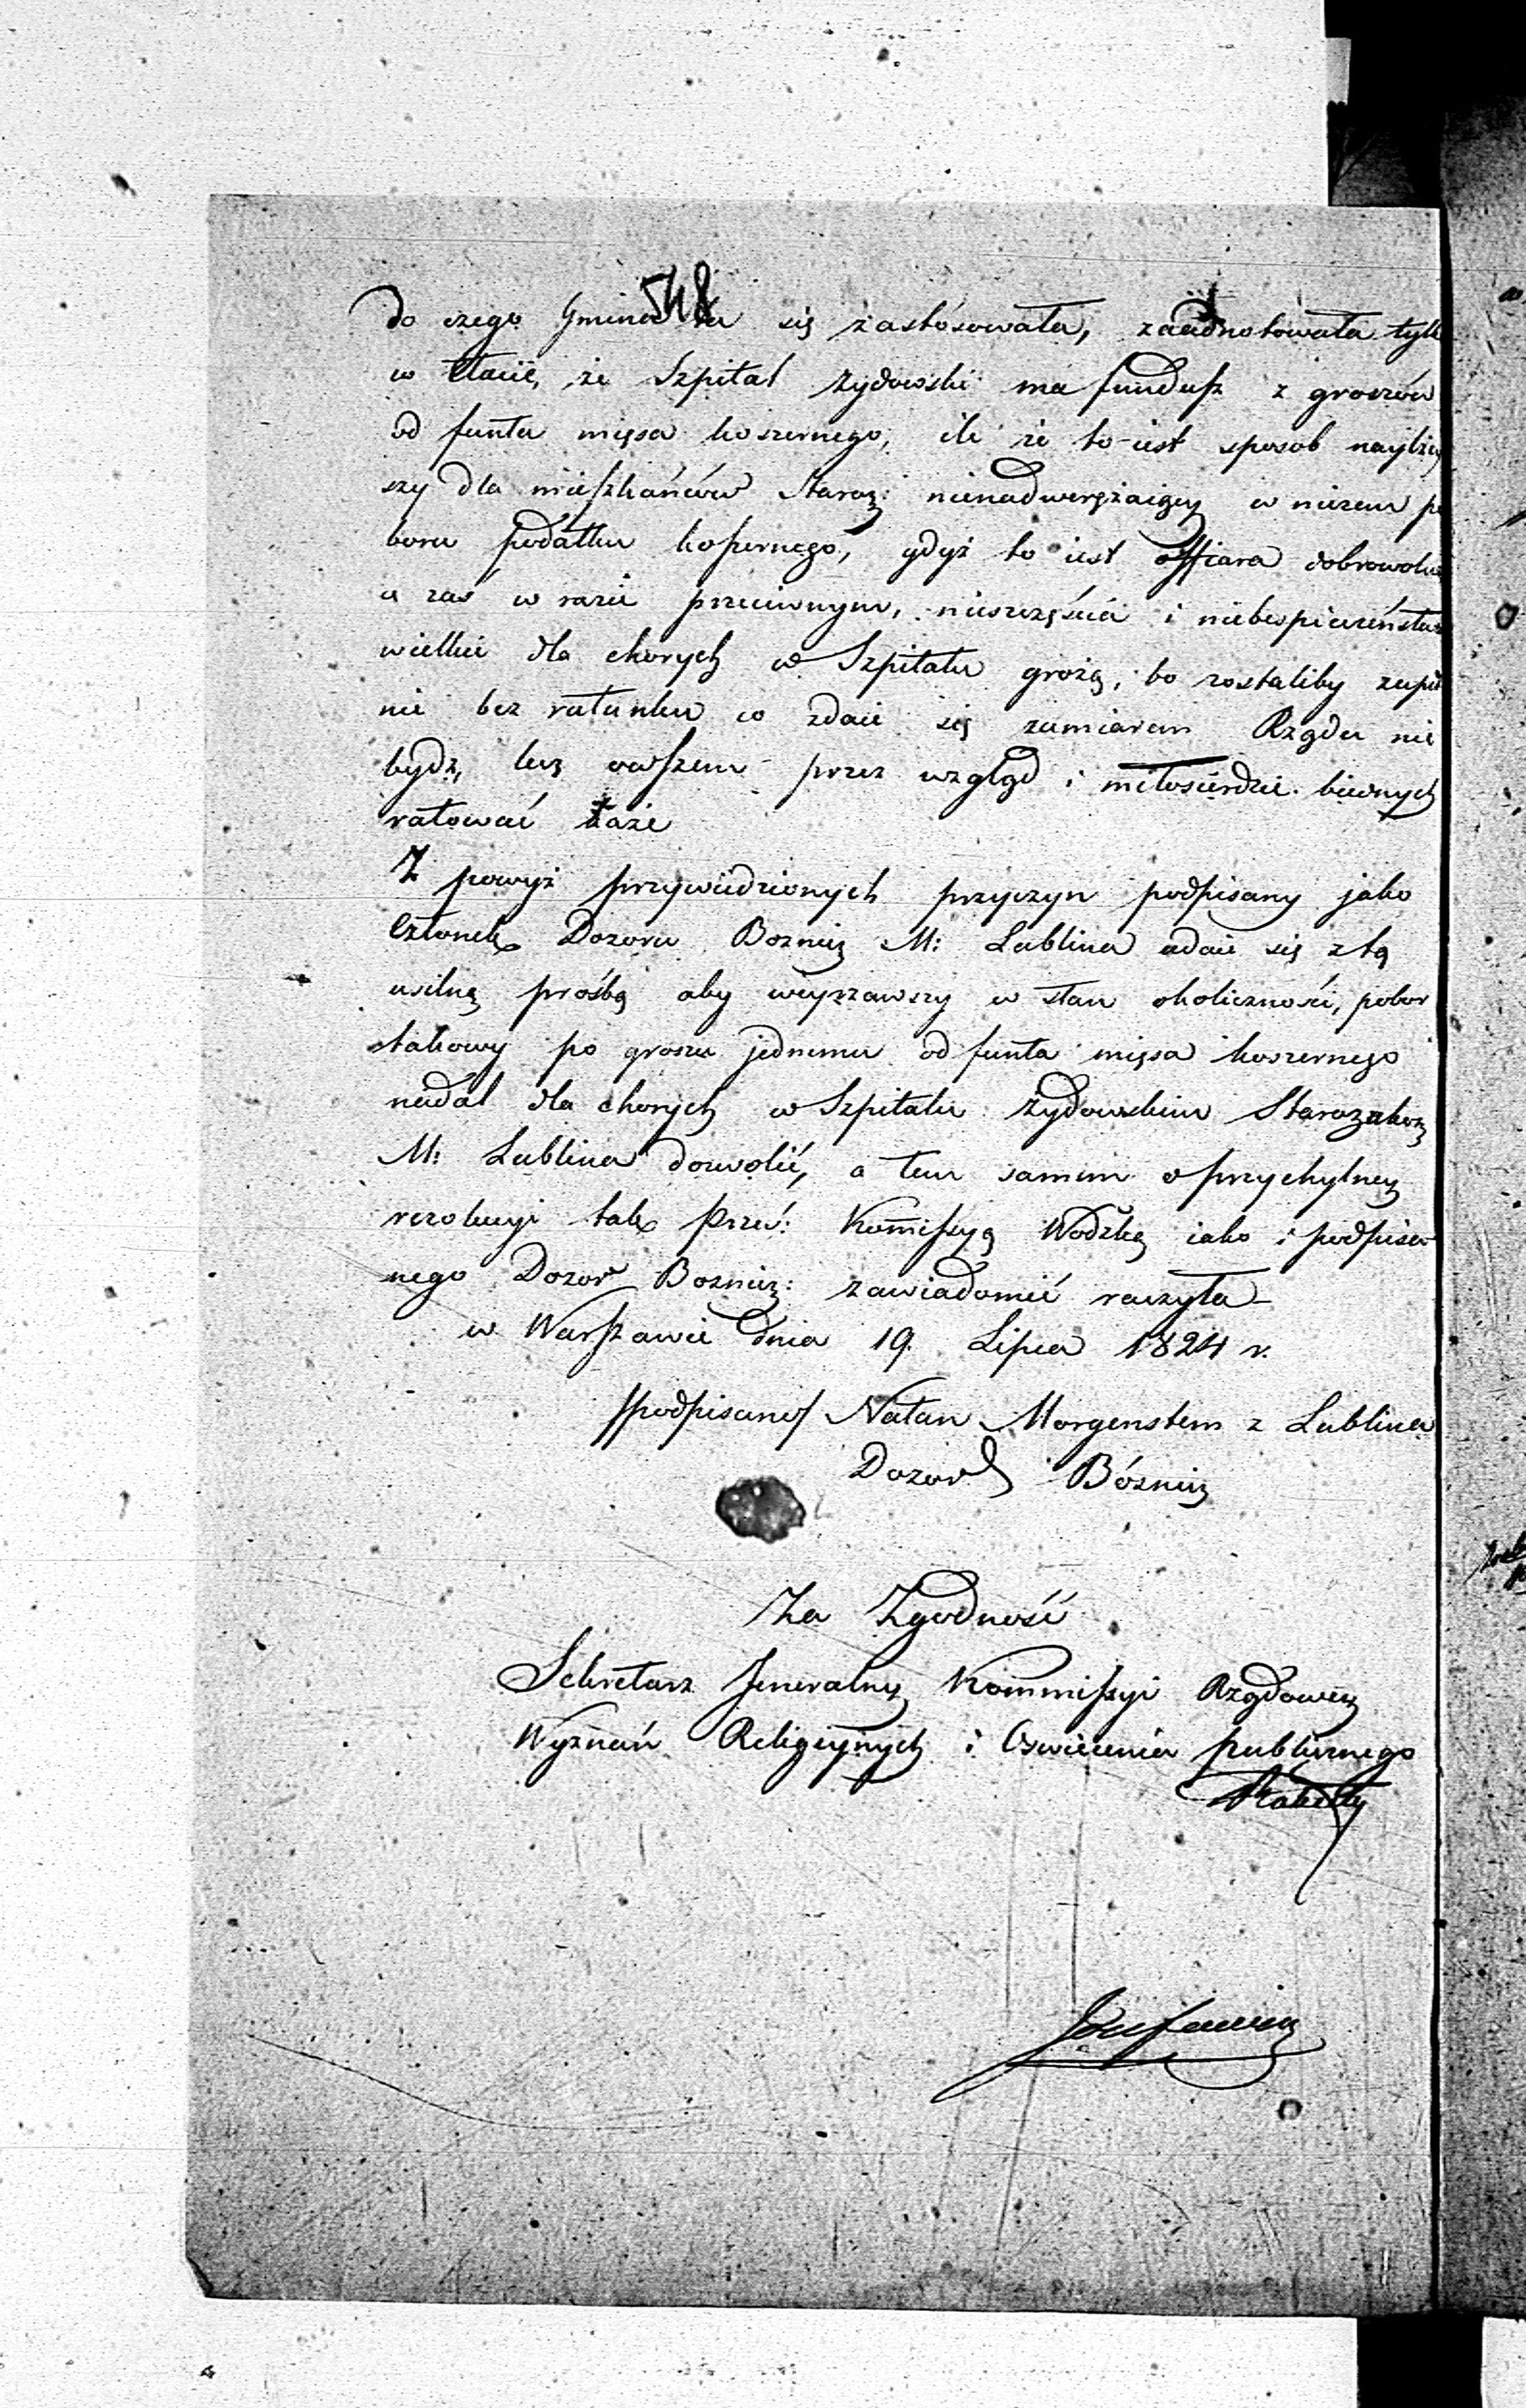 548
do czego Gmina ta się zastósowała, zaadnotowała tylk
w Etacie, że Szpital Żydowski ma fundusz z groszów
od funta mięsa koszernego, ile że to iest sposob naylżey
szy dla mieszkańców Staroz: nienadweręzaiący w niczem po
boru podatku koszernego, gdyż to iest offiara dobrowolna
a zaś w razie przeciwnym, nieszczęścia i niebespieczeństwa
wielkie dla chorych w Szpitalu grożą, bo zostaliby zupeł
nie bez ratunku co zdaie się zamiarem Rządu nie
bydź, lecz owszem przez wzgląd i miłosierdzie biednych
ratować każe
Z powyż przywiedzionych przyczyn podpisany jako
Członek Dozoru Boznicz M: Lublina udaie się z tą
usilną prośbą aby weyrzawszy w stan okoliczności, pobor
takowy po groszu jednemu od funta mięsa koszernego
nadal dla chorych w Szpitalu Żydowskim Starozakonn
M: Lublina dozwolić, a tem samem o przychylney
rezolucyi tak Prześ: Kommissyą Wodzką iako i podpisa
nego Dozor Boznicz: zawiadomić raczyła
w Warszawie dnia 19. Lipca 1824 r.
/podpisano/ Natan Morgenstern z Lublina
Dozor Bóznicz
Za Zgodność
Sekretarz Jeneralny Kommissyi Rządowey
Wyznań Religiynych i Oswiecenia publicznego